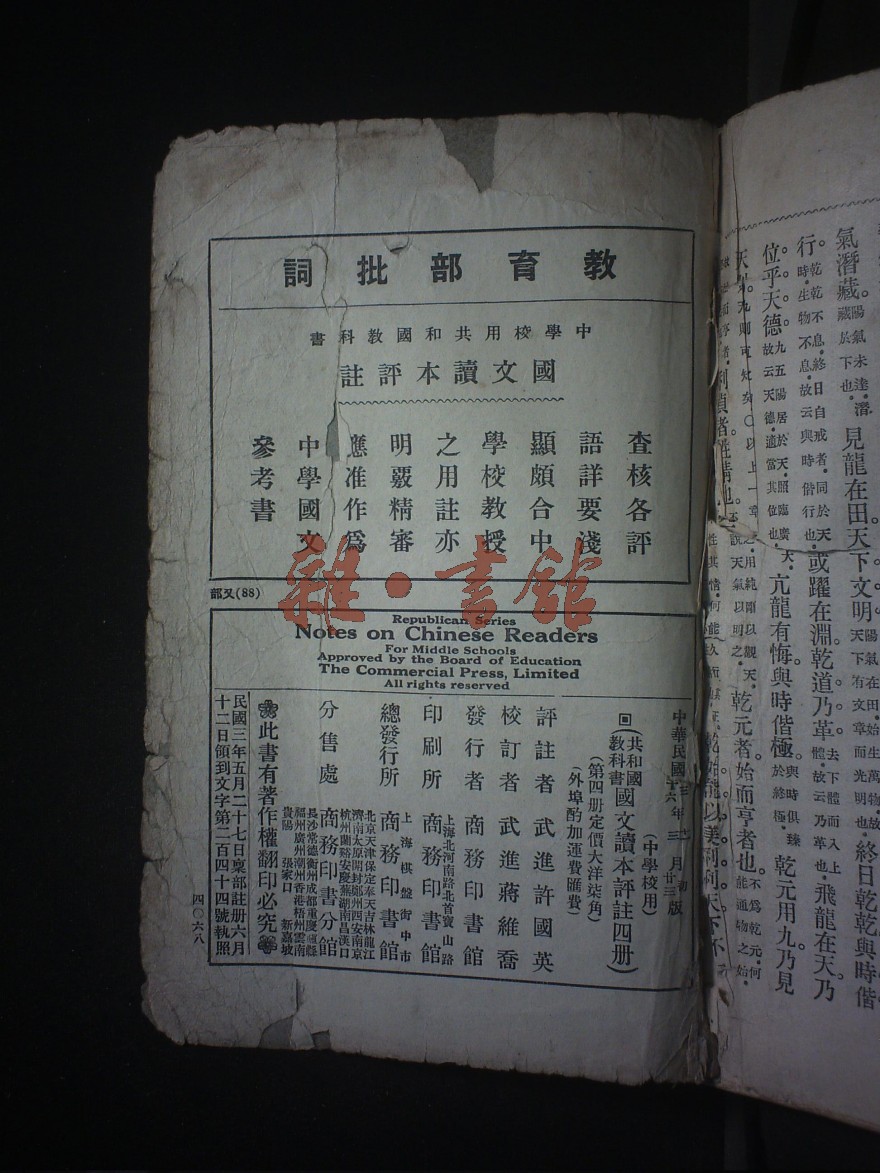 教育部批詞
中學校用共和國教科書
國文讀本評註
查核各評
語詳要淺
顯頗合中
學校教授
之用註亦
明覈精審
應准作爲
中學國文
參考書
(88)又部
Republican Series
Notes on Chinese Readers
For Middle Schools
Approved by the Board of Education
The Commercial Press, Limited
All rights reserved
中華民國
十六年三月廿三版
(中學校用)
(共和國教科書)國文讀本評註四册)
(第四册定價大洋柒角)
(外埠酌加運費匯費)
評註者 武進許國英
校訂者 武進蔣維喬
發行者 商務印書館
印刷所 上海北河南路北首寶山路 商務印書館
總發行所 上海棋盤街中市 商務印書館
分售處 北京天津保定奉天吉林龍江
濟南太原開封鄭州西安南京
杭州蘭谿安慶蕪湖南昌漢口
商務印書分館
長沙常德衡州成都重慶瀘縣
福州廣州潮州香港梧州雲南
貴陽 張家口 新嘉坡
此書有著作權翻印必究
民國三年五月二十七日稟部註册六月
十二日領到文字第二百四十四號執照
四〇六八
雜·書館
氣潛藏。陽氣未達。潛藏於下也。見龍在田。天下文明。陽氣在田。始生萬物。故天下有文章而光明也。終日乾乾。與時偕
行。乾乾不息。終日自戒者。同於天時。生物不息。故云與時偕行也。或躍在淵。乾道乃革。去下體而入上體。故云乃革也。飛龍在天。乃
位乎天德。九五陽居於天。照臨廣大。故云天德。適當其位也。亢龍有悔。與時偕極。與時俱臻於終極。乾元用九。乃見
乾元者。始而亨者也。